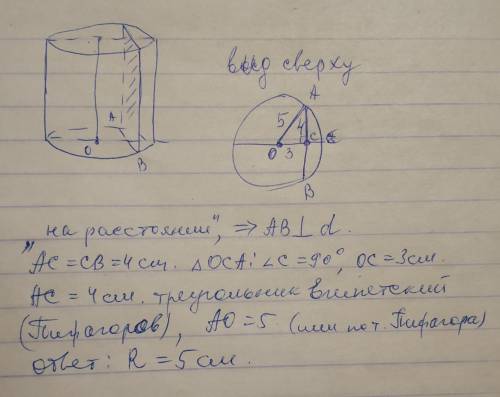 вид сверху
A
5
4
C
O
3
B
A
O
B
„на расстоянии", => AB⊥d.
AC=CB=4см. △OCA: ∠C=90°, OC=3см.
AC=4см. треугольник египетский
(Пифагоров), AO=5 (или по т. Пифагора)
ответ: R=5см.